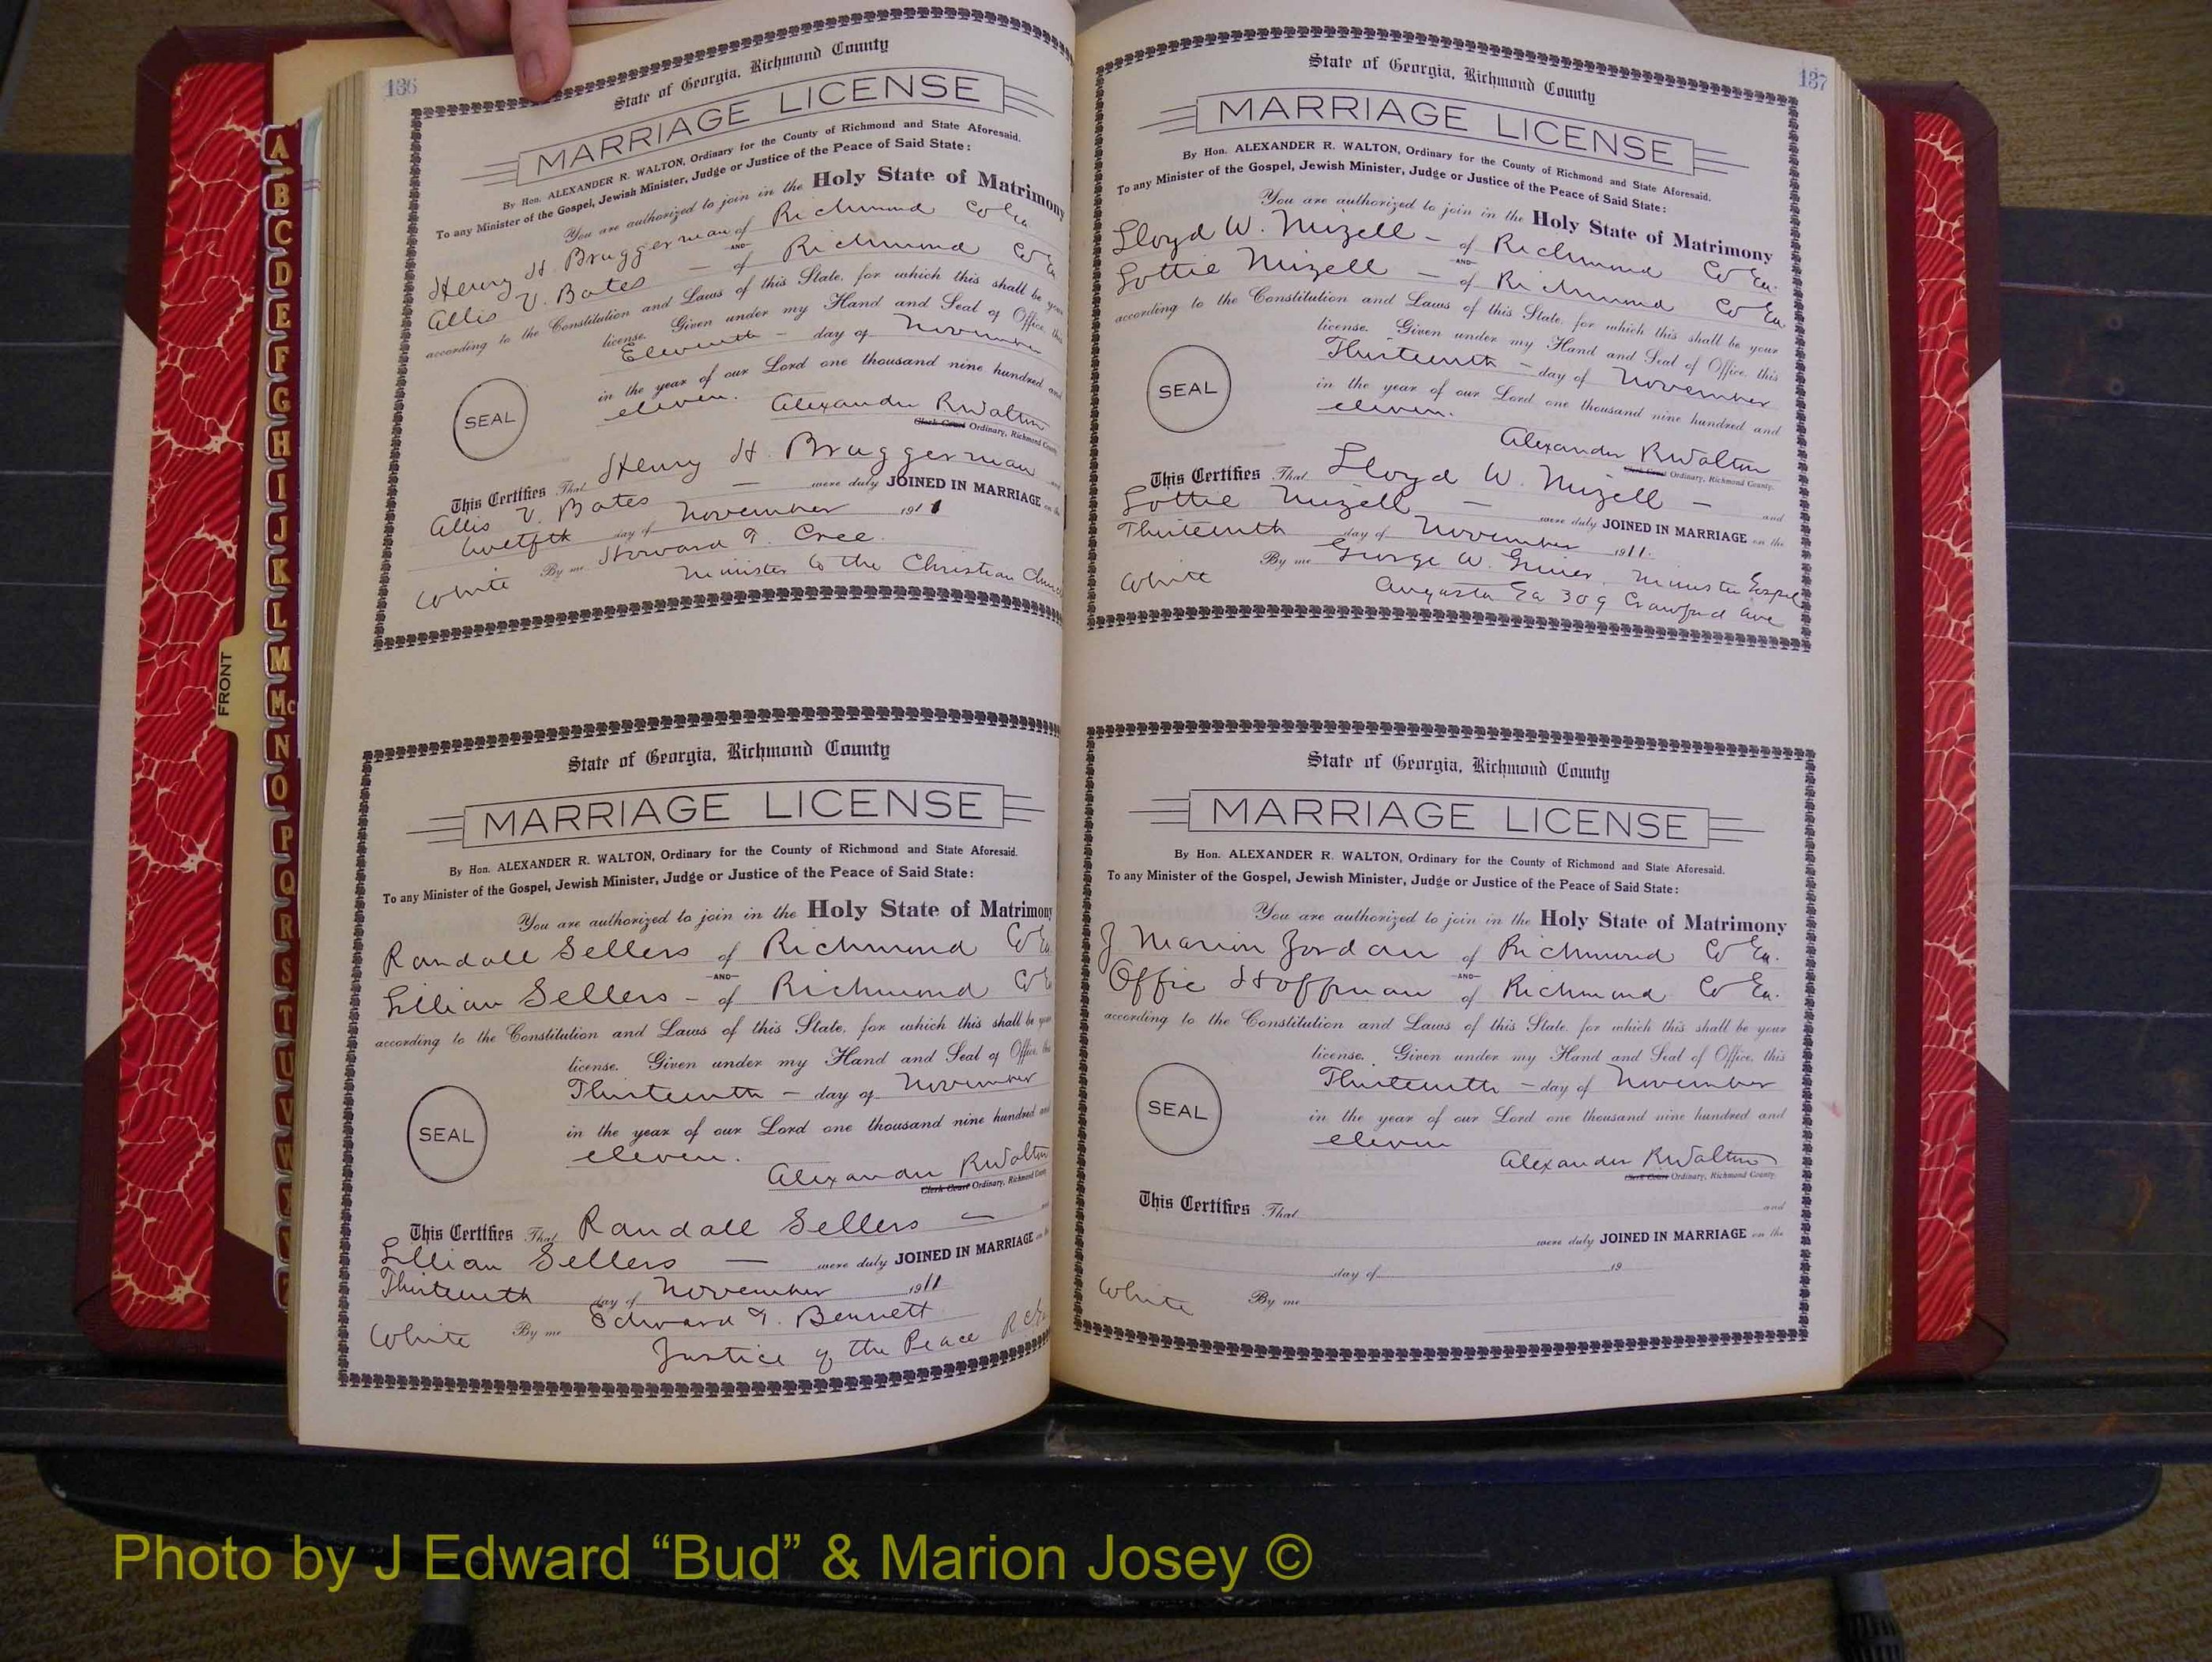 136
State of Georgia, Richmond County
MARRIAGE LICENSE
By Hon. ALEXANDER R. WALTON, Ordinary for the County of Richmond and State Aforesaid.
To any Minister of the Gospel, Jewish Minister, Judge or Justice of the Peace of Said State:
You are authorized to join in the Holy State of Matrimony
Henry H Bruggerman of Richmond Co Ga
AND
Allis V. Bates – of Richmond Co Ga
according to the Constitution and Laws of this State, for which this shall be your
license. Given under my Hand and Seal of Office, this
Eleventh – day of November
in the year of our Lord one thousand nine hundred and
eleven.
SEAL
Alexander R Walton
Clerk Court Ordinary, Richmond County
This Certifies That Henry H. Bruggerman and
Allis V. Bates – were duly JOINED IN MARRIAGE on the
twelfth day of November 1911
White By me Howard T. Cree.
Minister to the Christian
State of Georgia, Richmond County
MARRIAGE LICENSE
By Hon. ALEXANDER R. WALTON, Ordinary for the County of Richmond and State Aforesaid.
To any Minister of the Gospel, Jewish Minister, Judge or Justice of the Peace of Said State:
You are authorized to join in the Holy State of Matrimony
Randall Sellers of Richmond Co Ga.
AND
Lillian Sellers – of Richmond Co G
according to the Constitution and Laws of this State, for which this shall be your
license. Given under my Hand and Seal of Office, this
Thirteenth – day of November
in the year of our Lord one thousand nine hundred and
eleven.
SEAL
Alexander R Walton
Clerk Court Ordinary, Richmond County
This Certifies That Randall Sellers –
Lillian Sellers – were duly JOINED IN MARRIAGE on the
Thirteenth day of November 1911
White By me Edward T. Bennett
Justice of the Peace
137
State of Georgia, Richmond County
MARRIAGE LICENSE
By Hon. ALEXANDER R. WALTON, Ordinary for the County of Richmond and State Aforesaid.
To any Minister of the Gospel, Jewish Minister, Judge or Justice of the Peace of Said State:
You are authorized to join in the Holy State of Matrimony
Lloyd W. Mizell – of Richmond Co Ga.
AND
Lottie Mizell – of Richmond Co Ga
according to the Constitution and Laws of this State, for which this shall be your
license. Given under my Hand and Seal of Office, this
Thirteenth – day of November
in the year of our Lord one thousand nine hundred and
eleven.
SEAL
Alexander R Walton
Clerk Court Ordinary, Richmond County.
This Certifies That Lloyd W. Mizell – and
Lottie Mizell – were duly JOINED IN MARRIAGE on the
Thirteenth day of November 1911.
White By me George W. Minister Gospel
Augusta Ga 309 Crawford Ave
State of Georgia, Richmond County
MARRIAGE LICENSE
By Hon. ALEXANDER R. WALTON, Ordinary for the County of Richmond and State Aforesaid.
To any Minister of the Gospel, Jewish Minister, Judge or Justice of the Peace of Said State:
You are authorized to join in the Holy State of Matrimony
J Marion Jordan of Richmond Co Ga.
AND
Offie Hoffman of Richmond Co Ga.
according to the Constitution and Laws of this State, for which this shall be your
license. Given under my Hand and Seal of Office, this
Thirteenth – day of November
in the year of our Lord one thousand nine hundred and
eleven
SEAL
Alexander R Walton
Clerk Court Ordinary, Richmond County
This Certifies That and
were duly JOINED IN MARRIAGE on the
day of 19
White By me
FRONT
A
B
C
D
E
F
G
H
I
J
K
L
M
Mc
N
O
P
Q
R
S
T
U
V
W
Photo by J Edward “Bud” & Marion Josey ©